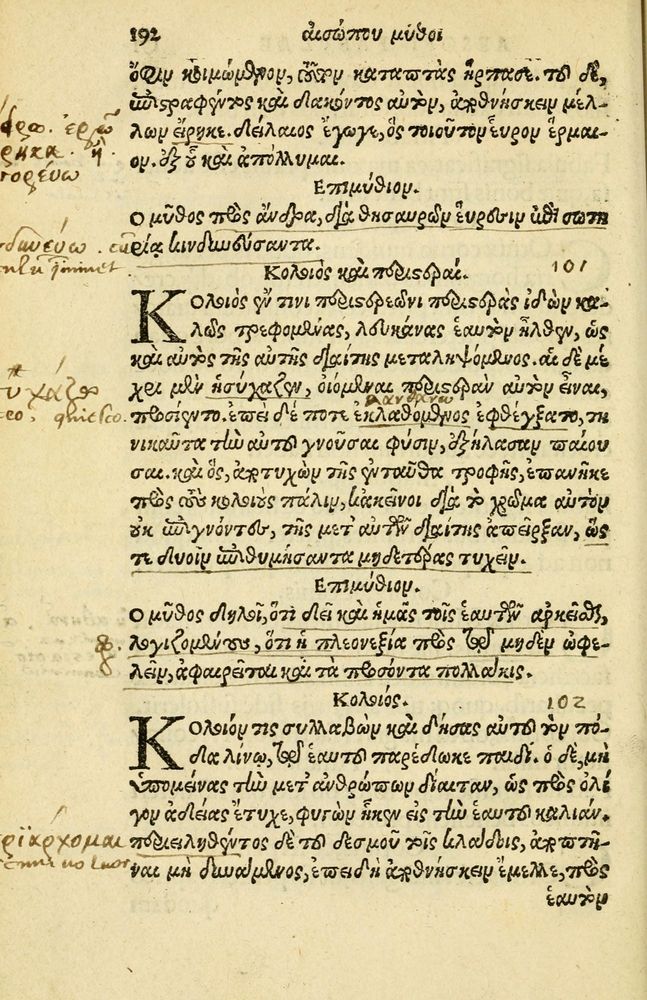 192 αἰσώπου μῦθοι
ὄφιν κοιμώμενον, τοῦτον καταπτὰς ἥρπασε. τοῦ δὲ,
ἐπιστραφέντος καὶ δακόντος αὐτὸν, ἀποθνήσκειν μέλ-
λων εἴρηκε. δείλαιος ἔγωγε, ὃς τοιοῦτον εὗρον ἕρμαι-
ον. ἐξ οὗ καὶ ἀπόλλυμαι.
Επιμύθιον.
Ο μῦθος πρὸς ἄνδρα, διὰ θησαυρῶν εὕρεσιν περὶ σωτη
ρίας κινδυνεύσαντα.
Κολοιὸς καὶ περιστεραί. 101
Κολοιὸς ἔν τινι περιστρεῶνι περιστερὰς ἰδὼν κα-
λῶς τρεφομένας, λευκάνας ἑαυτὸν ἦλθεν, ὡς
καὶ αὐτὸς τῆς αὐτῆς διαίτης μεταληψόμενος. αἱ δὲ μέ
χρι μὲν ἡσύχαζεν, οἰόμεναι περιστερὰν αὐτὸν εἶναι,
προσίεντο. ἐπεὶ δέ ποτε ἐκλαθόμενος ἐφθέγξατο, τη
νικαῦτα τὴν αὐτοῦ γνοῦσαι φύσιν, ἐξήλασαν παίου
σαι. καὶ ὃς, ἀποτυχὼν τῆς ἐνταῦθα τροφῆς, ἐπανῆκε
πρὸς τοὺς κολοιοὺς πάλιν, κἀκεῖνοι διὰ τὸ χρῶμα αὐτὸν
οὐκ ἐπιγνόντες, τῆς μετ' αὐτῶν διαίτης ἀπεῖρξαν, ὥς
τε δυοῖν ἐπιθυμήσαντα μηδετέρας τυχεῖν.
Επιμύθιον.
Ο μῦθος δηλοῖ, ὅτι δεῖ καὶ ἡμᾶς τοῖς ἑαυτῶν ἀρκεῖσθαι,
λογιζομένους, ὅτι ἡ πλεονεξία πρὸς τῷ μηδὲν ὠφε-
λεῖν, ἀφαιρεῖται καὶ τὰ προσόντα πολλάκις.
Κολοιός. 102
Κολοιόν τις συλλαβὼν καὶ δήσας αὐτοῦ τὸν πό-
δα λίνῳ, τῷ ἑαυτοῦ παρέδωκε παιδί. ὁ δὲ, μὴ
ὑπομείνας τὴν μετ' ἀνθρώπων δίαιταν, ὡς πρὸς ὀλί
γον ἀδείας ἔτυχε, φυγὼν ἧκεν εἰς τὴν ἑαυτοῦ καλιάν.
περιειληθέντος δὲ τοῦ δεσμοῦ τοῖς κλάδοις, ἀποπτῆ-
ναι μὴ δυνάμενος, ἐπειδὴ ἀποθνήσκειν ἔμελλε, πρὸς
ἑαυτὸν